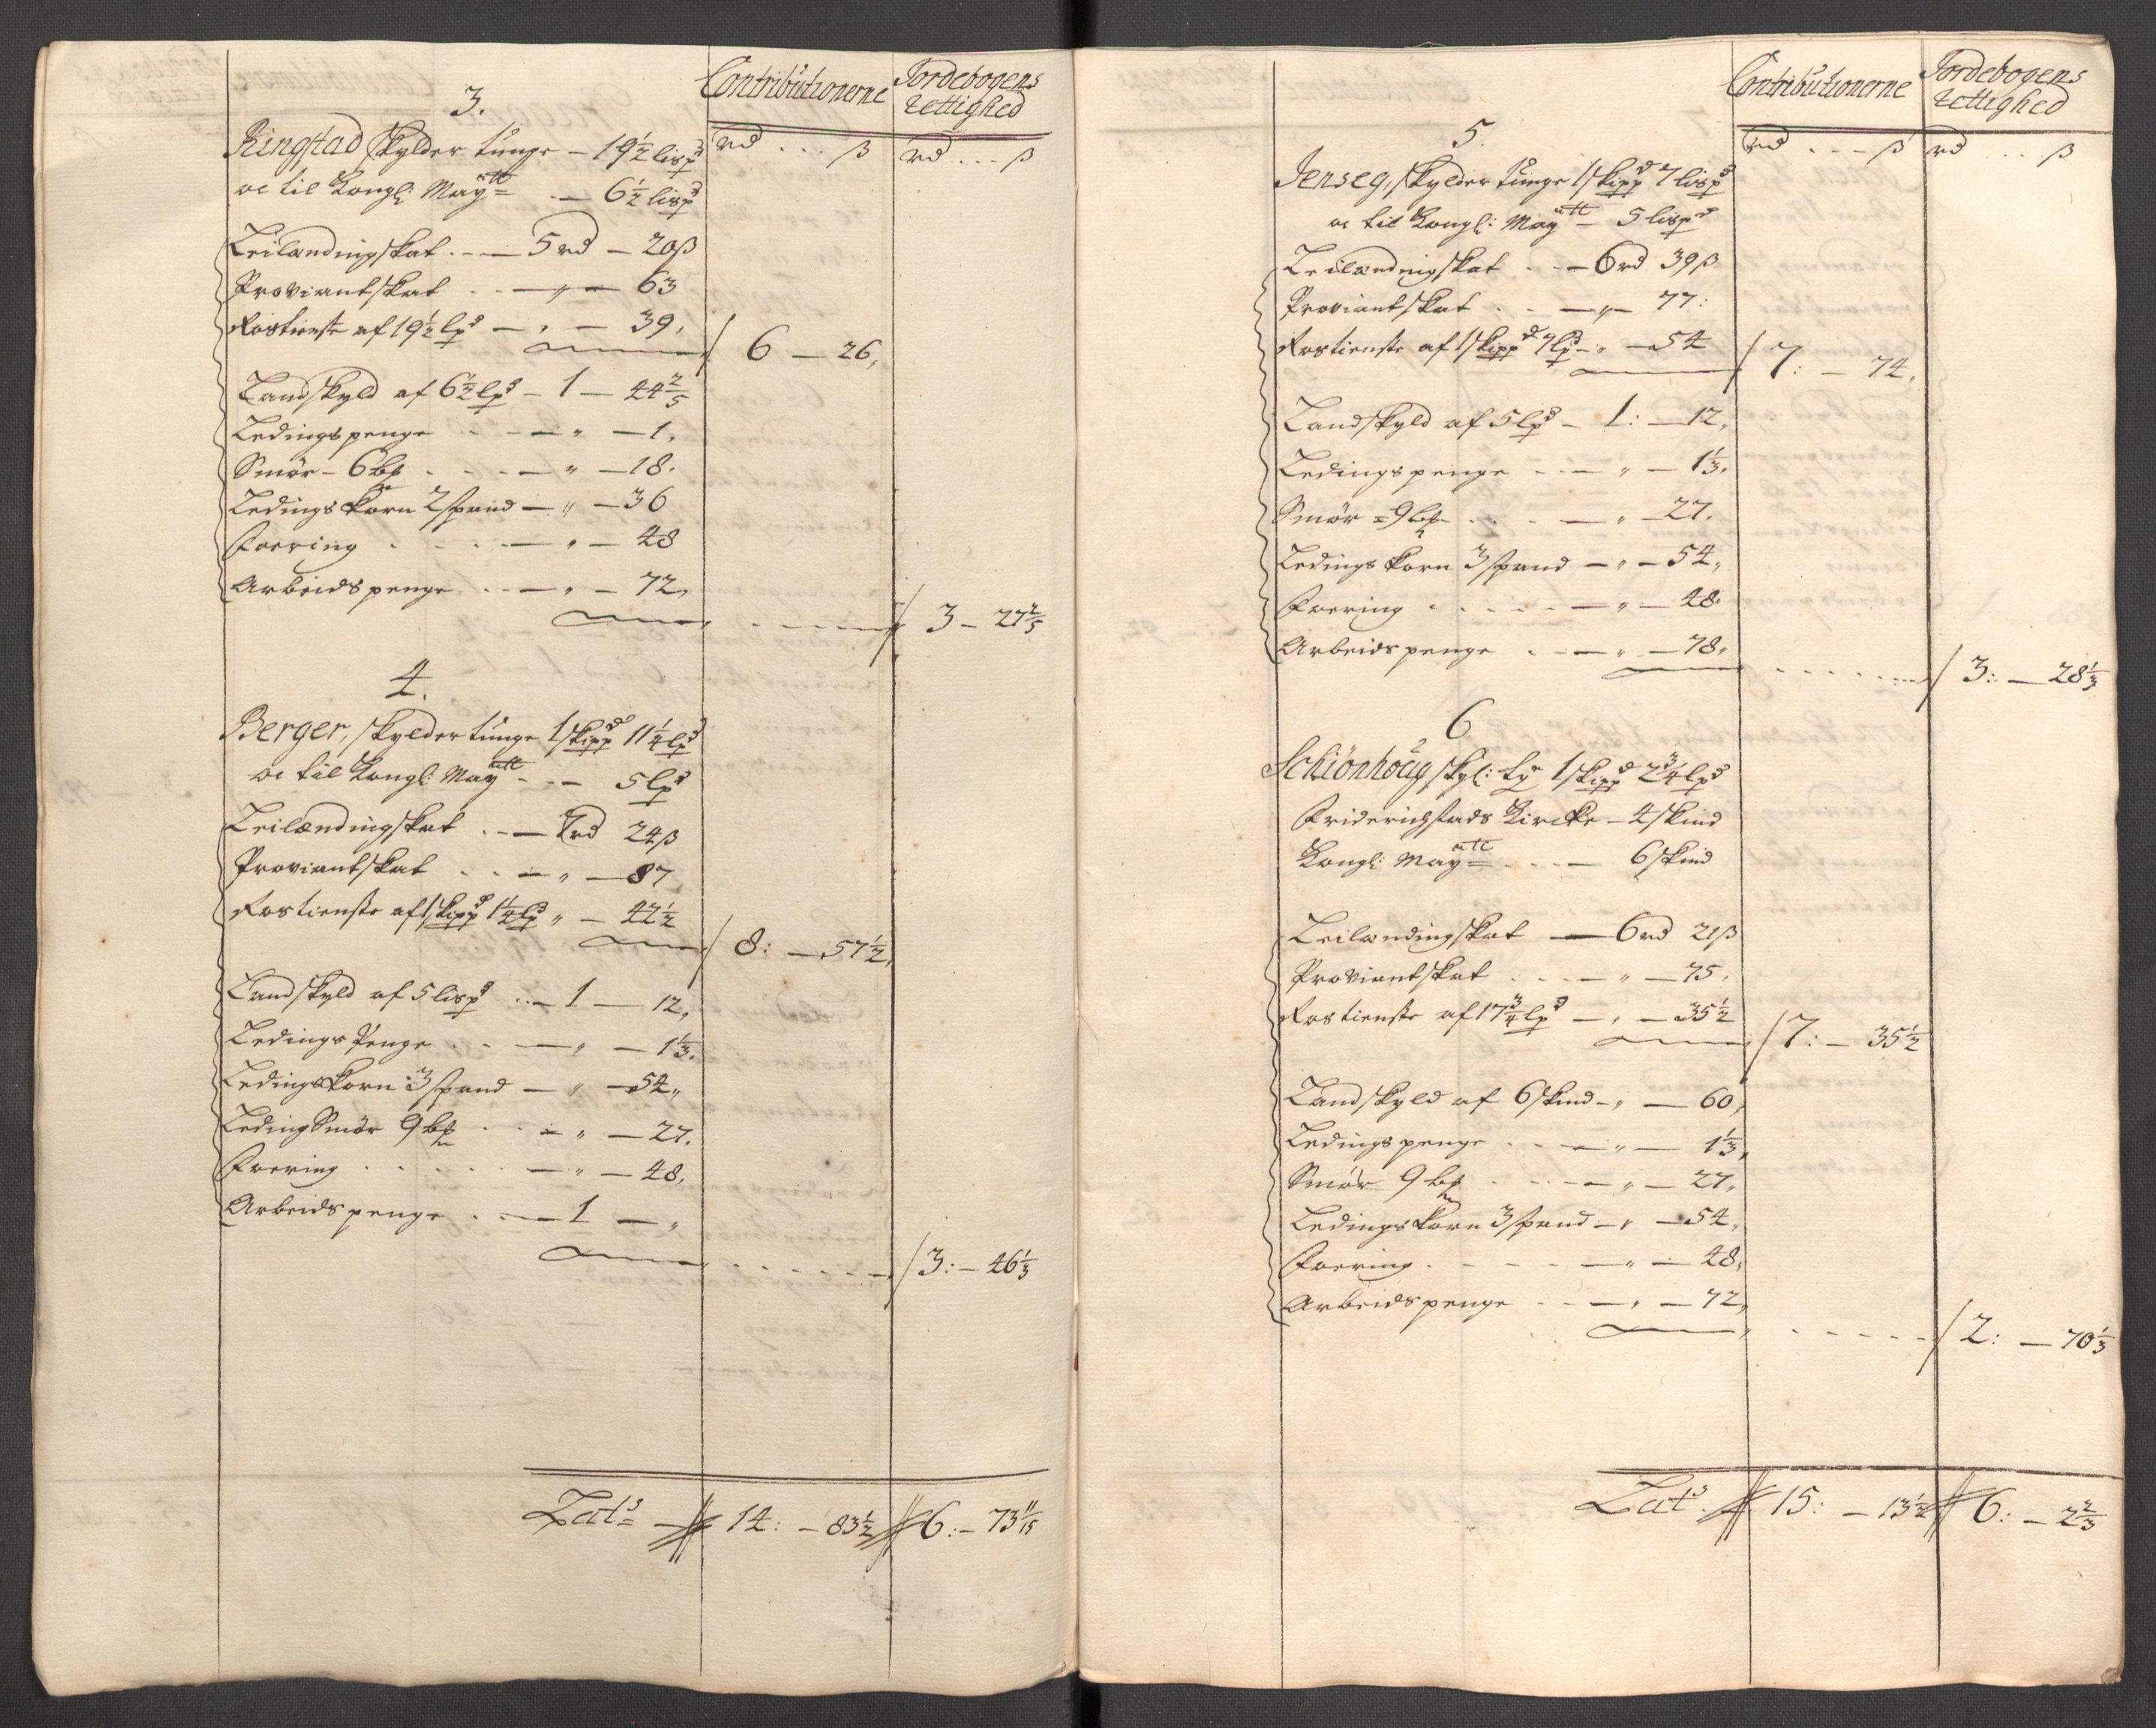 Contributionerne Jordebogens
rettighed
3.
rd . . . β rd . . . β
Ringstad skylder tunge – 19½ lispd
oc til Kongl: Maytt – 6½ lispd
Leilændingskat . – 5 rd – 20β
Proviantskat . . – „ – 63
Rostieneste af 19½ lpd – „ – 39,
6 – 26,
Landskyld af 6½ lpd – 1 – 44 2/5
Ledingspenge . . – „ – 1,
Smør – 6 bp . . – „ – 18.
Ledings Korn 2 spand – „ – 36
Foering . . . – „ – 48
Arbeidspenge . . – „ – 72,
3 – 27 2/5
4.
Berger, skylder tunge 1 skippd 11¼ lpd
oc til Kongl: Maytt – – 5 lpd
Leilændingskat . . – 7 rd 24β
Proviantskat . . – „ – 87
Rostieneste af 1 skippd 1¼ lpd „ – 42½
8: – 57½,
Landskyld af 5 lispd . – 1 – 12,
Ledings Penge . . – „ – 1⅓.
Ledings Korn 3 spand – „ – 54„
Leding Smør 9 bp . . – „ – 27.
Foering . . . . – „ – 48,
Arbeidspenge . . – 1 – „
3: – 46⅓
Lats – 14: – 83½ 6: – 73 11/15
Contributionerne Jordebogens
rettighed
5.
rd . . . β rd . . . β
Jenseg, skylder tunge 1 skippd 7 lispd
oc til Kongl: Maytt – 5 lispd
Leilændingskat . . – 6 rd 39β
Proviantskat . . – „ – 77:
Rostieneste af 1 skippd 7 lpd – „ – 54
7: – 74,
Landskyld af 5 lpd – 1: – 12,
Ledingspenge . . – „ – 1⅓.
Smør – 9 bp . . . – „ – 27.
Ledings Korn 3 spand – „ – 54,
Foering . . . . – „ – 48.
Arbeidspenge . . – „ – 78,
3: – 28⅓
6
Schiönhöug skyl: tge 1 skippd 2¾ lpd
Friderichstads Kircke – 4 skind
Kongl: Maytt . . – 6 skind
Leilændingskat – 6 rd 21β
Proviantskat . . . – „ – 75.
Rostieneste af 17¾ lpd – „ – 35½
7: – 35½
Landskyld af 6 skind – „ – 60,
Ledingspenge . . – „ – 1⅓,
Smør 9 bp . . . – „ – 27,
Ledings Korn 3 spand – „ – 54,
Foering . . . . – „ – 48,
Arbeidspenge . . – „ – 72,
2: – 70⅓
Lats 15: – 13½ 6: – 2⅔